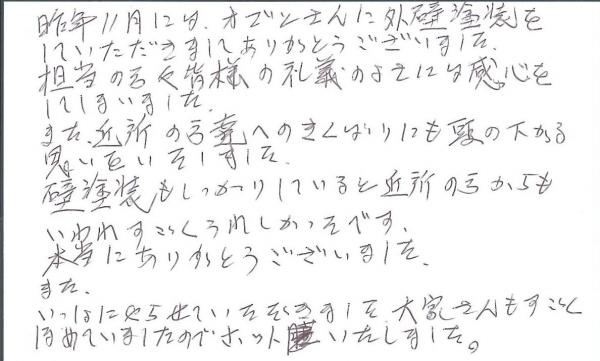 昨年11月には、オゴシさんに外壁塗装を
していただきましてありがとうございました。
担当の方々皆様の礼義のよさには感心を
してしまいました。
また、近所の方達へのきくばりにも頭の下がる
思いをいたしました。
壁塗装もしっかりしていると近所の方からも
いわれすごくうれしかったです。
本当にありがとうございました。
また、
いっしょにやらせていただきました大家さんもすごく
ほめていましたのでホット いたしました。